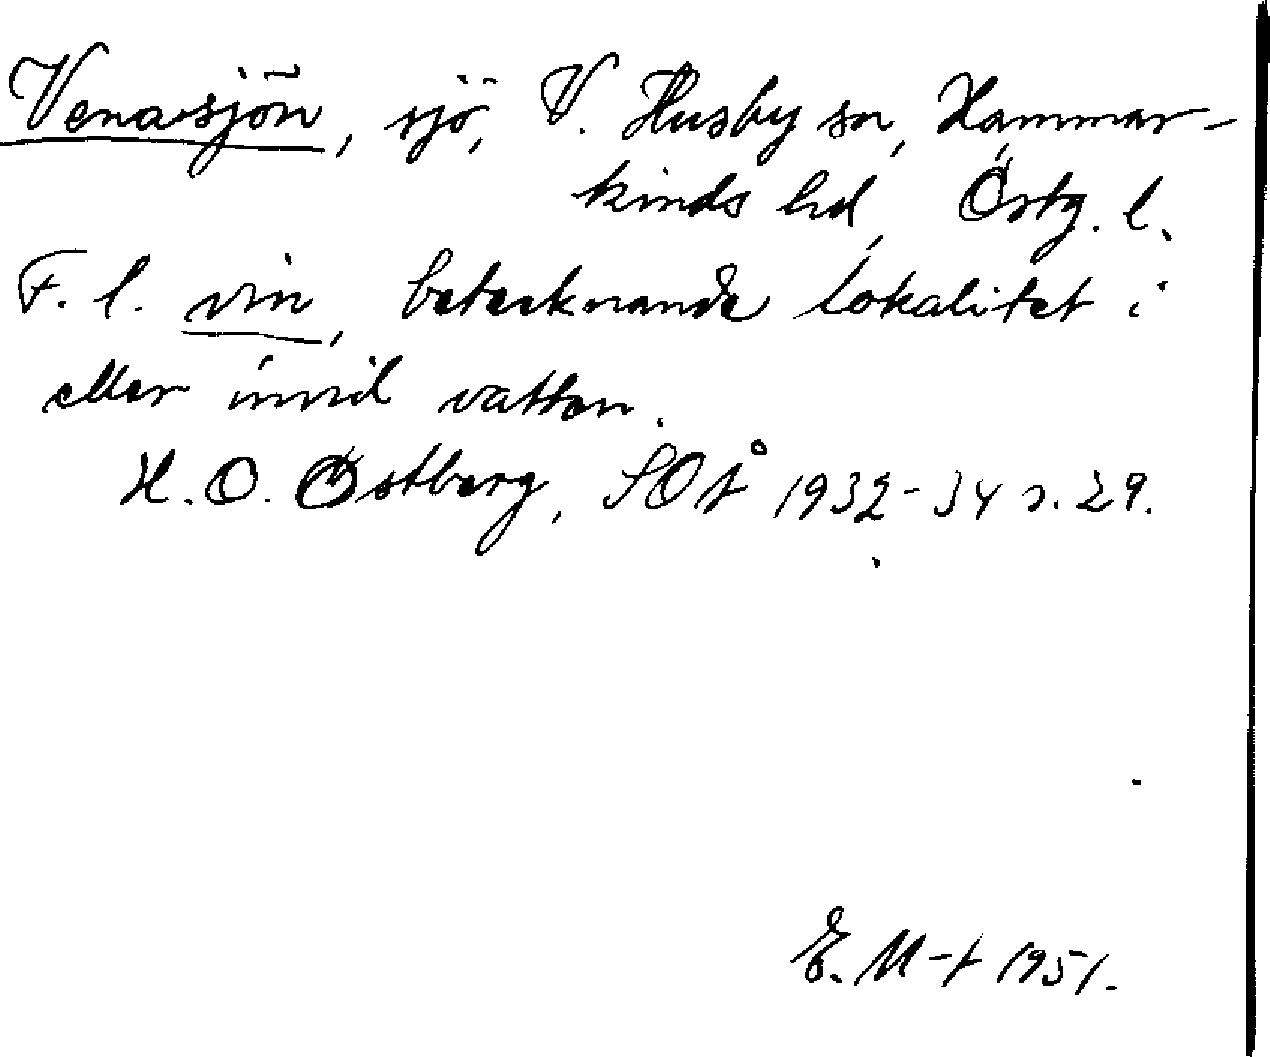 Venasjön, sjö, V. Husby sn, Hammar-
kinds hd, Östg. l.
F. l. vin, betecknande lokalitet i
eller invid vatten.
H. O. Östberg, SOÅ 1932-34 s. 29.
E. M-t 1951.